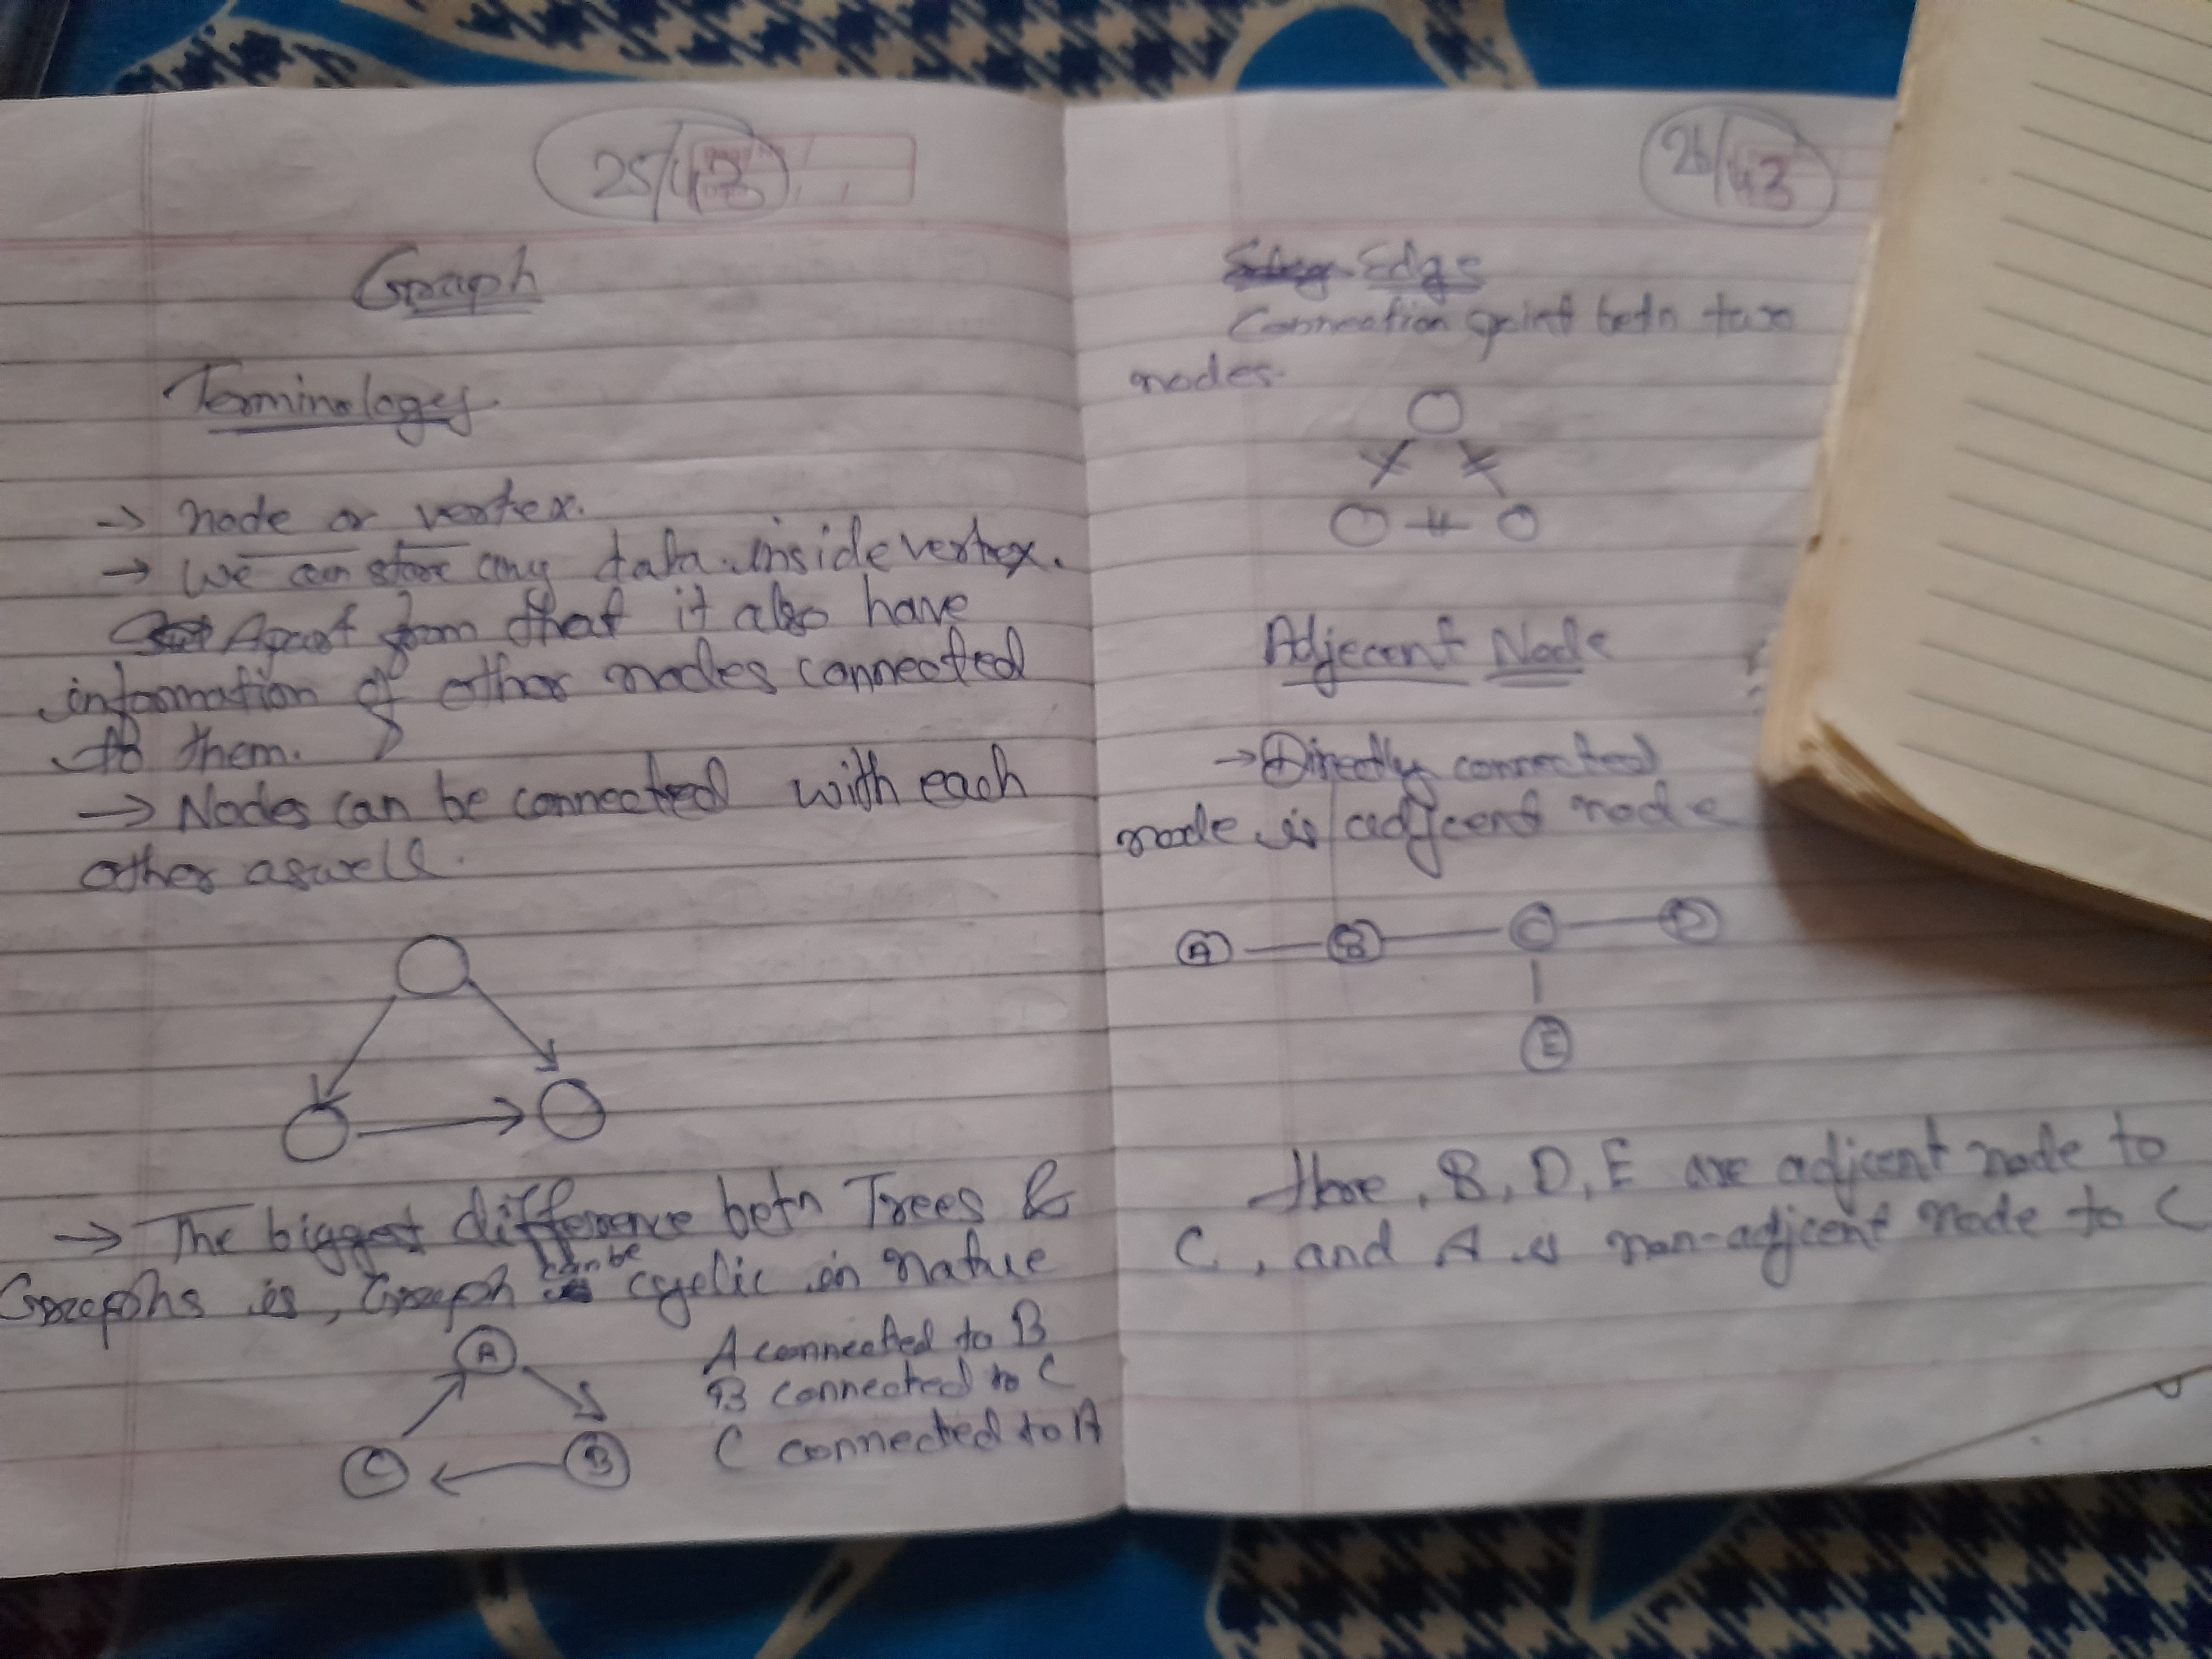 25/43
Graph
Terminology
→ node or vertex.
→ We can store any data inside vertex.
Apart from that it also have
information of other nodes connected
to them.
→ Nodes can be connected with each
other aswell.
→ The biggest difference betn Trees &
Graphs is, Graph can be cyclic in nature
A
C
B
A connected to B
B connected to C
C connected to A
26/43
Edge
Connection point betn two
nodes.
Adjecent Node
→ Directly connected
node is adjcent node
A B C D
E
Here, B, D, E are adjcent node to
C, and A is non-adjcent node to C